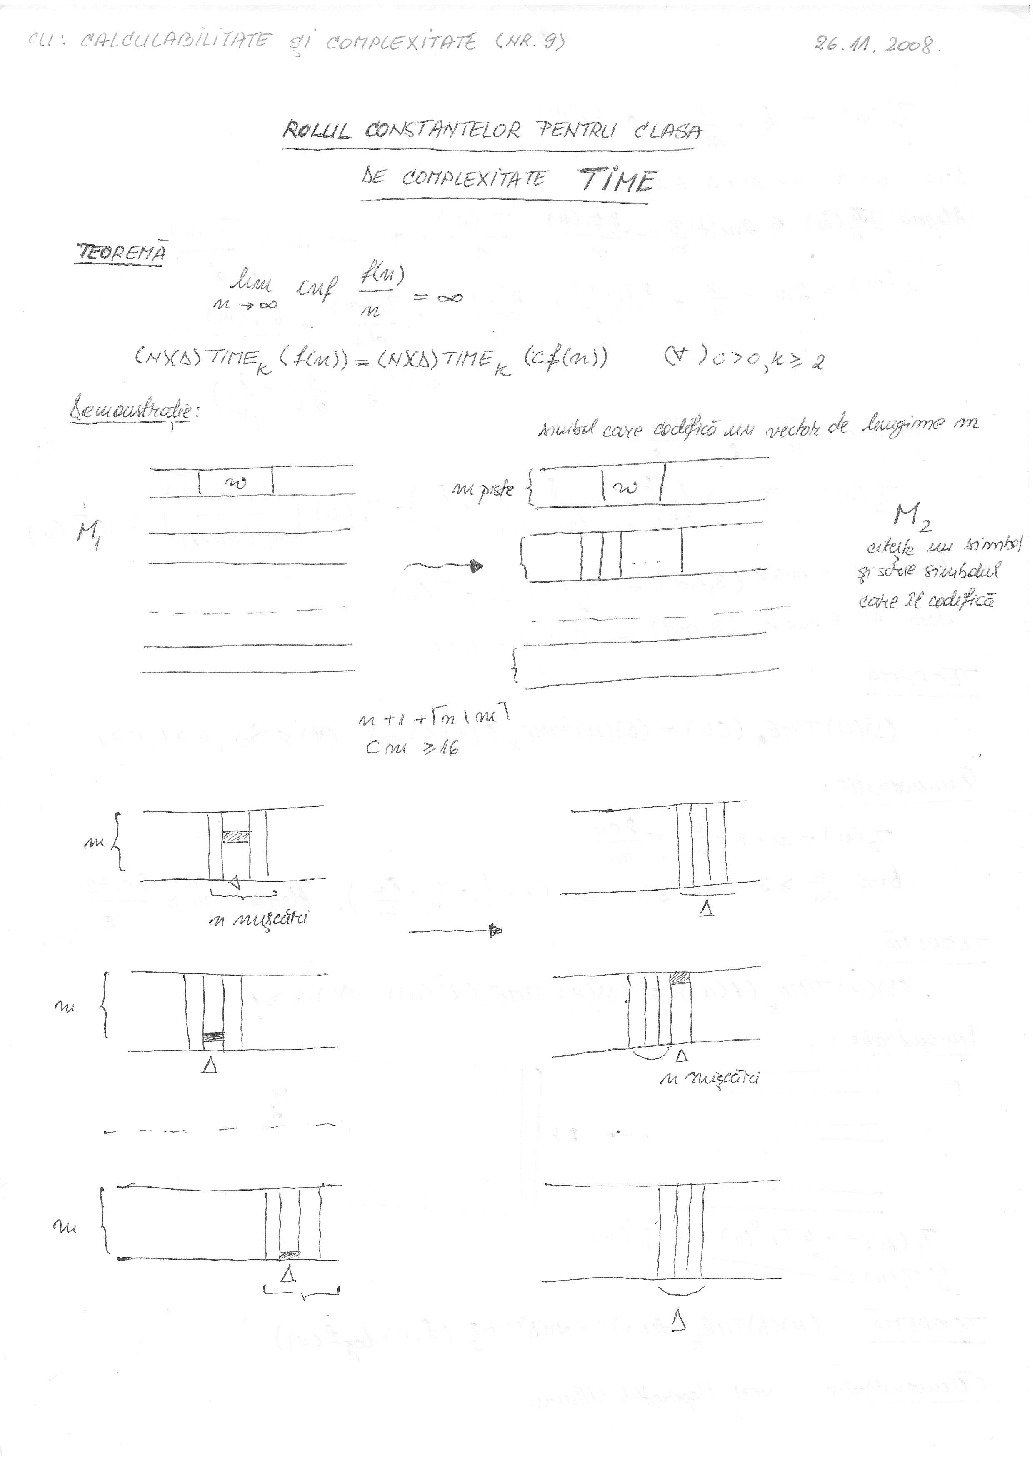 CU: CALCULABILITATE și COMPLEXITATE (NR. 9) 26.11.2008.
ROLUL CONSTANTELOR PENTRU CLASA
DE COMPLEXITATE TIME
TEOREMĂ
lim inf f(n)/n = ∞
n → ∞
(N)(Δ) TIME_k (f(n)) = (N)(Δ) TIME_k (c f(n)) (∀) c > 0, k ≥ 2
Demonstrație:
simbol care codifică un vector de lungime m
w
m piste
w
M_1
M_2
citește un simbol
și scrie simbolul
care îl codifică
n + 1 + ⌈n/m⌉
c m ≥ 16
m
Δ
m mișcări
Δ
m
Δ
Δ
m mișcări
m
Δ
Δ